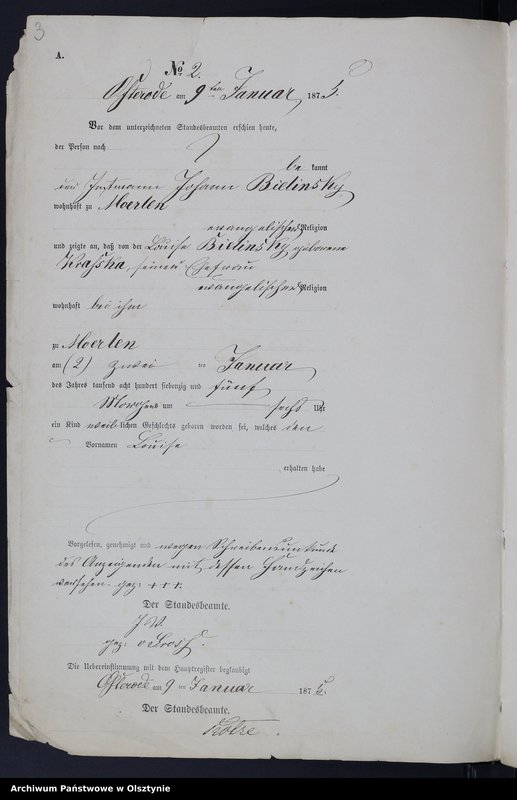 3
A.
No 2.
Osterode am 9ten Januar 1875.
Vor dem unterzeichneten Standesbeamten erschien heute,
der Person nach
be kannt
der Instmann Johann Bielinsky
wohnhaft zu Moerlen
evangelischer Religion
und zeigte an, daß von der Louise Bielinsky geborene
Krafska, seiner Ehefrau
evangelischer Religion
wohnhaft bei ihm
zu Moerlen
am (2) zwei ten Januar
des Jahres tausend acht hundert siebenzig und fünf
Morgens um sechs Uhr
ein Kind weib lichen Geschlechts geboren worden sei, welches den
Vornamen Louise
erhalten habe
Vorgelesen, genehmigt und wegen Schreibensunkunde
des Anzeigenden mit dessen Handzeichen
versehen. gez: +++.
Der Standesbeamte.
J. V.
gez:
Die Uebereinstimmung mit dem Hauptregister beglaubigt
Osterode am 9 ten Januar 1875.
Der Standesbeamte.
Archiwum Państwowe w Olsztynie